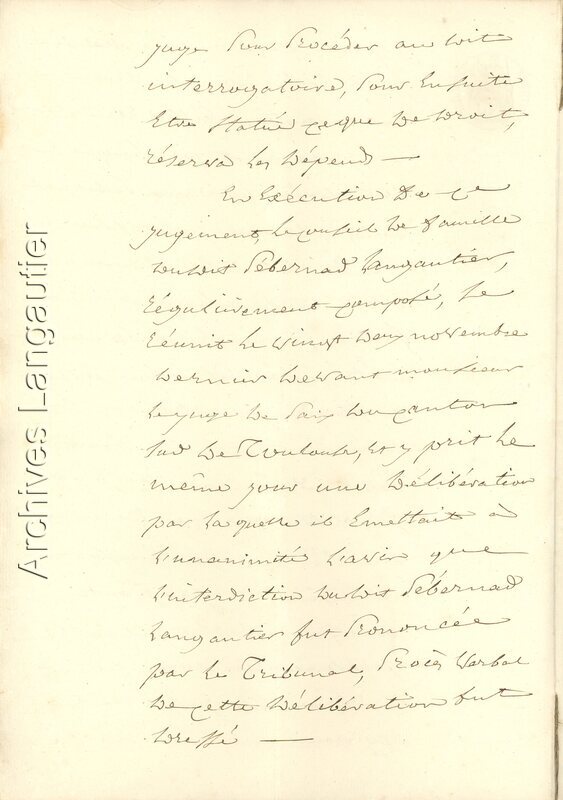 juge pour procéder au dit
interrogatoire, pour ensuite
être statué ce que de droit,
réserva les dépens —
En exécution de ce
jugement, le conseil de famille
du dit Pébernad Langautier,
régulièrement composé, se
réunit le vingt deux novembre
dernier devant monsieur
le juge de Paix du canton
sud de Toulouse, et y prit le
même jour une délibération
par laquelle il émettait à
l'unanimité l'avis que
l'interdiction du dit Pébernad
Langautier fut prononcée
par le Tribunal, Procès Verbal
de cette délibération fut
dressé —
Archives Langautier